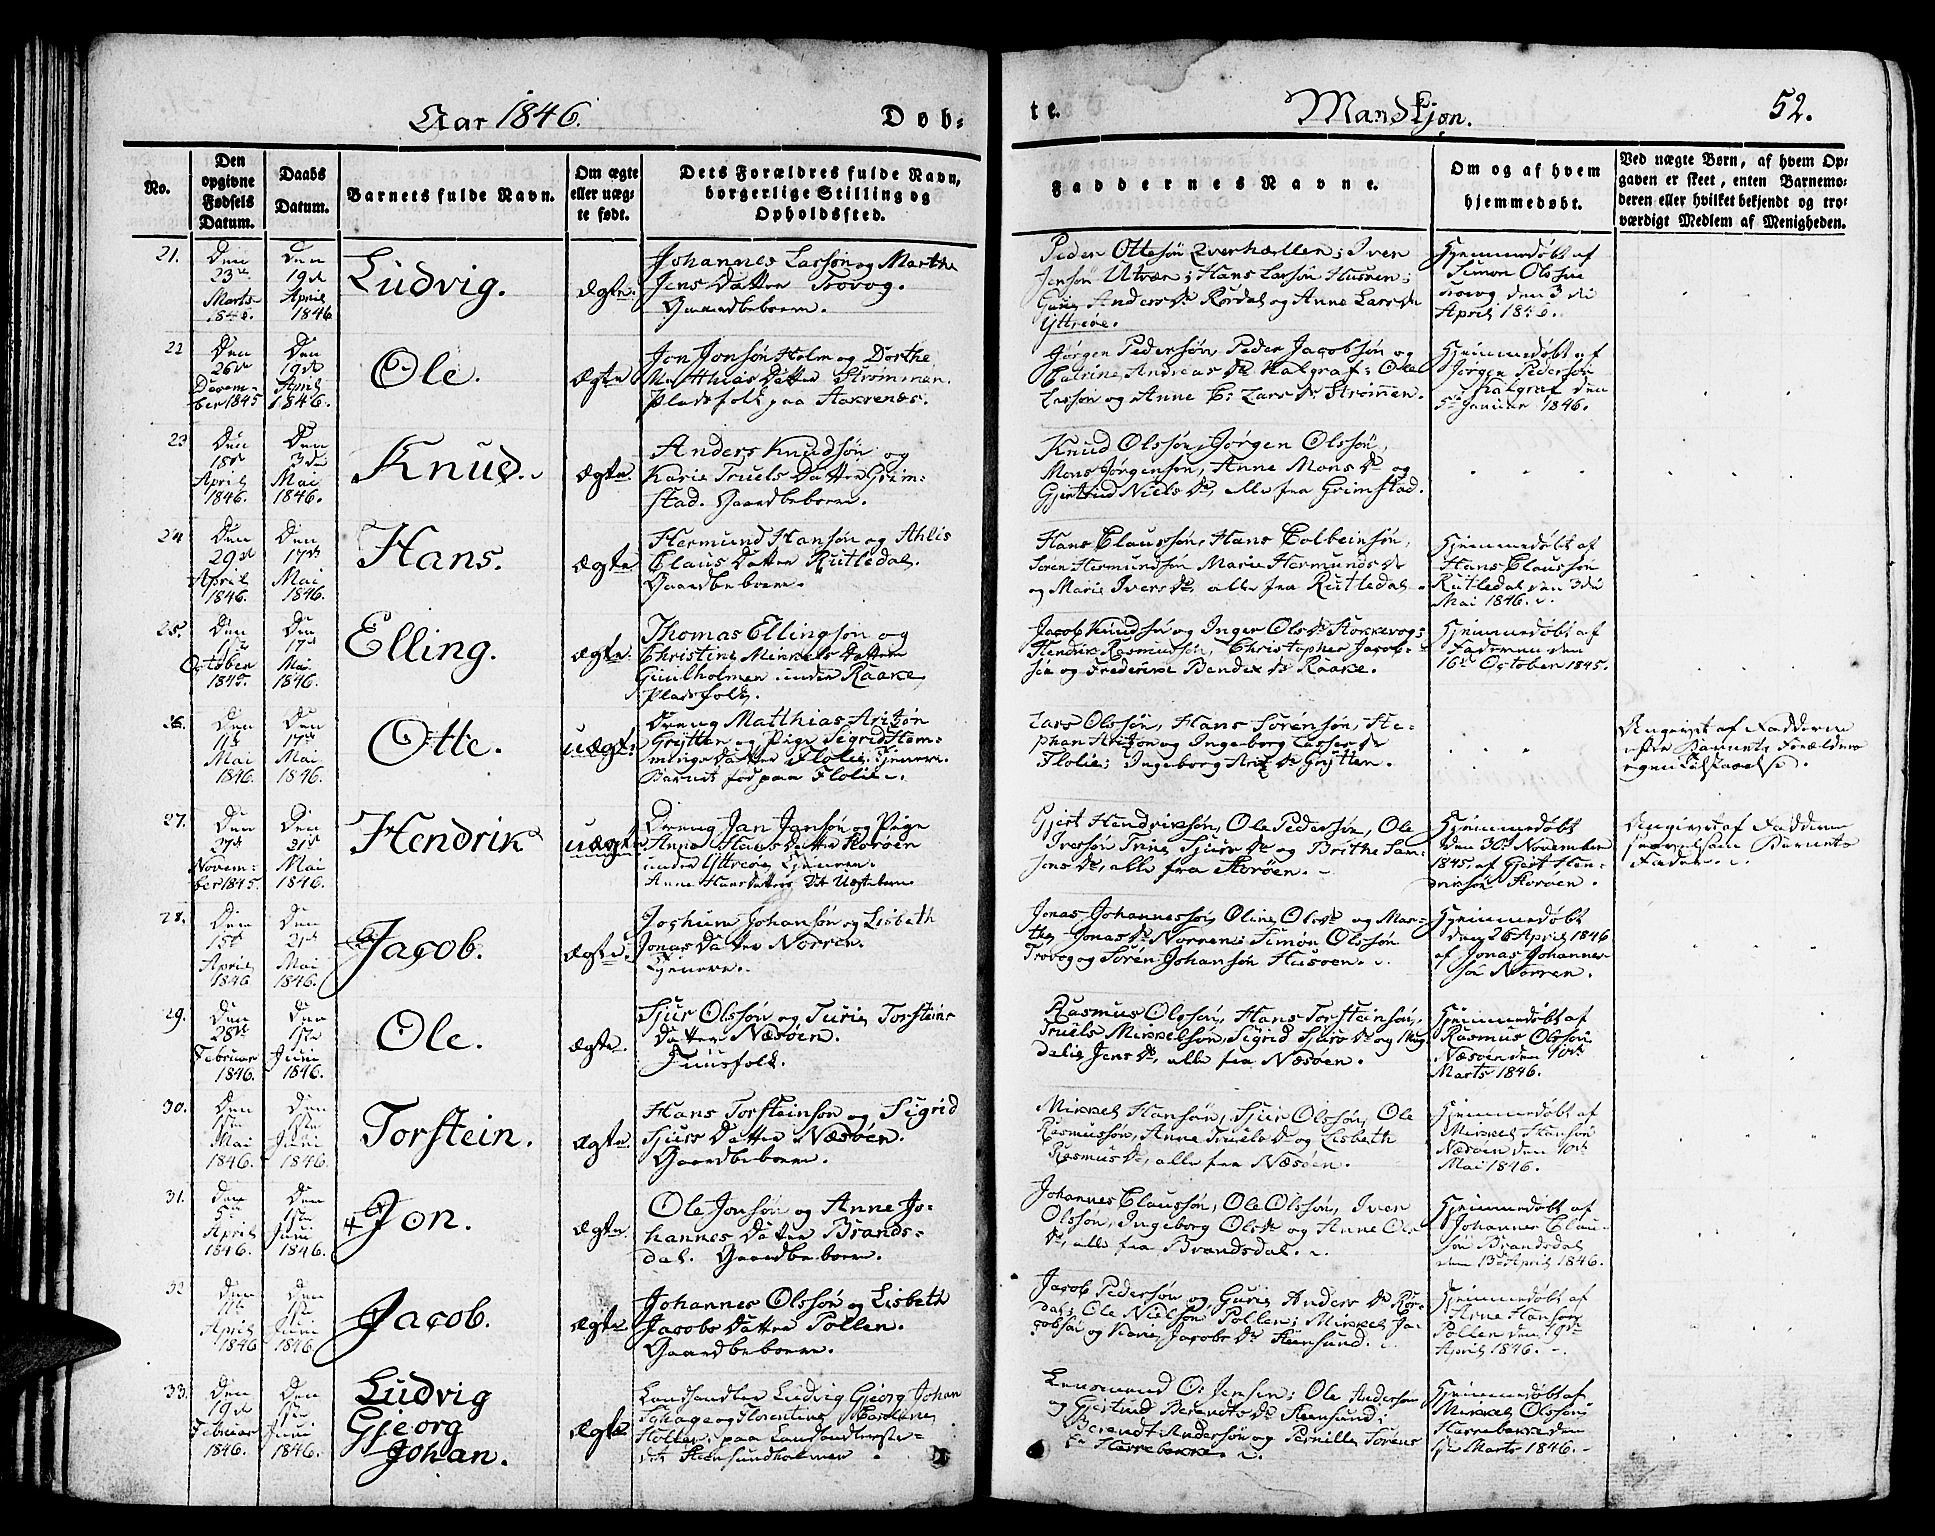 Aar 1846.
Døb-
te.
Mandkjøn.
52.
No.
Den opgivne Fødsels Datum.
Daabs Datum.
Barnets fulde Navn.
Om ægte eller uægte født.
Dets Forældres fulde Navn, borgerlige Stilling og Opholdssted.
Faddernes Navne.
Om og af hvem hjemmedøbt.
Ved uægte Børn, af hvem Opgaven er skeet, enten Barnemoderen eller hvilket bekjendt og troværdigt Medlem af Menigheden.
21.
Den 23de Marts 1846.
Den 19de April 1846
Ludvig.
Ægte.
Johannes Larsøn og Marthe
Jens Datter Trovog.
Gaardbeboere.
Peder Ottesøn Tverhællen; Iver
Jensøn Utvær; Hans Larsøn Husøen;
Guri Anders Dr Rørdal og Anne Lars Dr
Ytterøe.
Hjemmedøbt af
Simon Olsson
Trovog den 3die
April 1846.
22
Den 26de December 1845
Den 19de April 1846.
Ole.
Ægte
Jon Jonsøn Holm og Dorthe
Matthias Datter Strømmen.
Pladsfolk paa Aakrenæs.
Jørgen Pedersøn, Peder Jacobsøn og
Catrine Andreas Dr Kalgraf; Ole
Larsøn og Anne E: Lars Dr Strømen.
Hjemmedøbt af
Jørgen Pedersøn
Kalgraf den
5te Januar 1846.
23
Den 18de April 1846.
Den 3die Mai 1846.
Knud.
Ægte.
Anders Knudsøn og
Karie Truels Datter Grim-
stad. Gaardbeboere.
Knud Olssøn, Jørgen Olssøn,
Mons Jørgensøn, Anne Mons Dr og
Gjertrud Niels Dr, alle fra Grimstad.
24
Den 29de April 1846.
Den 17de Mai 1846.
Hans.
Ægte
Hermund Hansøn og Ahlis
Claus Datter Rutledal.
Gaardbeboere.
Hans Claussøn, Hans Colbeinsøn,
Søren Hermundsøn Marie Hermunds Dr
og Marie Ivers Dr, alle fra Rutledal.
Hjemmedøbt af
Hans Claussøn
Rutledal den 3die
Mai 1846.
25.
October 1845.
Den 17de Mai 1846.
Elling.
Ægte.
Thomas Ellingsøn og
Christine Mikkels Datter
Guulholmen under Raake,
Pladsfolk.
Jacob Knudsøn og Inger Ols Dr Storkevog;
Hendrik Rasmussøn, Christopher Jacob-
søn og Frederikke Bendix Dr Raake.
Hjemmedøbt af
Faderen den
16de October 1845.
26.
Den 11te Mai 1846.
Den 17de Mai 1846.
Otte.
uægte
Dreng Matthias Arisøn
Grytten og Pige Sigrid Hem-
minge Datter Flolie, Tjenere.
Barnet fød paa Flolie.
Lars Olssøn, Hans Sørensøn, Ste-
phan Arisøn og Ingeborg Lasses Dr
Flolie; Ingeborg Aris Dr Grytten.
Angivet af Fadderne
efter Barnets Forældres
egen Tilstaaelse.
27.
Den 27de November 1845.
Den 21de Mai 1846.
Hendrik
uægte
Dreng Jan Jansøn og Pige
Anne Hans Datter Storøen
under Ytterøe, Tjenere.
Anne Hansdatters 2det Uægtebarn.
Gjert Hendriksøn, Ole Pedersøn, Ole
Iversøn, Trine Sjurs Dr og Brithe Lam-
jens Dr, alle fra Storøen.
Hjemmedøbt
den 30te November
1845, af Gjert Hen-
driksøn Storøen.
Angivet af Fadderne
saavelsom Barnets
Fader.
28.
Den 15de April 1846
Den 21de Mai 1846.
Jacob.
Ægte.
Jochum Johansøn og Lisbeth
Jonas Datter Norren.
Tjenere.
Jonas Johannessøn, Oline Ols Dr og Mar-
the Jonas Dr Norren; Simon Olssøn
Trovog og Søren Johansøn Husøen.
Hjemmedøbt
den 26 April 1846
af Jonas Johannes-
søn Norren.
29.
Den 28de Februar 1846.
Den 1ste Juni 1846.
Ole.
Ægte.
Sjur Olssøn og Turie Torsteins
Datter Næsøen.
Huusfolk.
Rasmus Olssøn, Hans Torsteinsøn,
Truels Mikkelsøn, Sigrid Sjurs Dr og Mag-
dalie Jens Dr, alle fra Næsøen.
Hjemmedøbt af
Rasmus Olssøn
Næsøen den 10de
Marts 1846.
30.
Den Mai 1846.
Den 1ste Juni 1846.
Torstein.
Ægte
Hans Torsteinsøn og Sigrid
Sjurs Datter Næsøen.
Gaardbeboere.
Mikkel Hansøn, Sjur Olssøn, Ole
Rasmussøn, Anne Truels Dr og Lisbeth
Rasmus Dr, alle fra Næsøen.
Hjemmedøbt af
Mikkel Hansøn
Næsøen den 10de
Mai 1846.
31.
Den 5te April 1846.
Den 1ste Juni 1846.
Jon.
Ægte.
Ole Jonsøn og Anne Jo-
hannes Datter Brands-
dal. Gaardbeboere.
Johannes Claussøn, Ole Olssøn, Iver
Olssøn, Ingeborg Ols Dr og Anne Ols
Dr, alle fra Brandsdal.
Hjemmedøbt af
Johannes Claus-
søn Brandsdal
den 13de April 1846.
32
Den 11te April 1846
Den 1ste Juni 1846.
Jacob.
Ægte
Johannes Olssøn og Lisbeth
Jacobs Datter Pollen.
Gaardbeboere.
Jacob Pedersøn og Guri Anders Dr Rør-
dal; Ole Nielsøn Pollen; Mikkel Ja-
cobsøn og Karie Jacobs Dr Steensund.
Hjemmedøbt af
Arne Hansøn
Pollen den 19de
April 1846.
33.
Den 19de Februar 1846.
Den 1ste Juni 1846.
Ludvig
Gjeorg
Johan.
Ægte.
Landhandler Ludvig Gjeorg Johan
og Florentine Caroline
paa Landhandlerste-
det Steensundholmen
Lensmand O: Jensen; Ole Andersøn
og Gjertrud Berendts Dr Steensund;
Berendt Andersøn og Pernille Sørens
Dr Herrebekke.
Hjemmedøbt af
Mikkel Olssøn
Herrebekke den
Marts 1846.